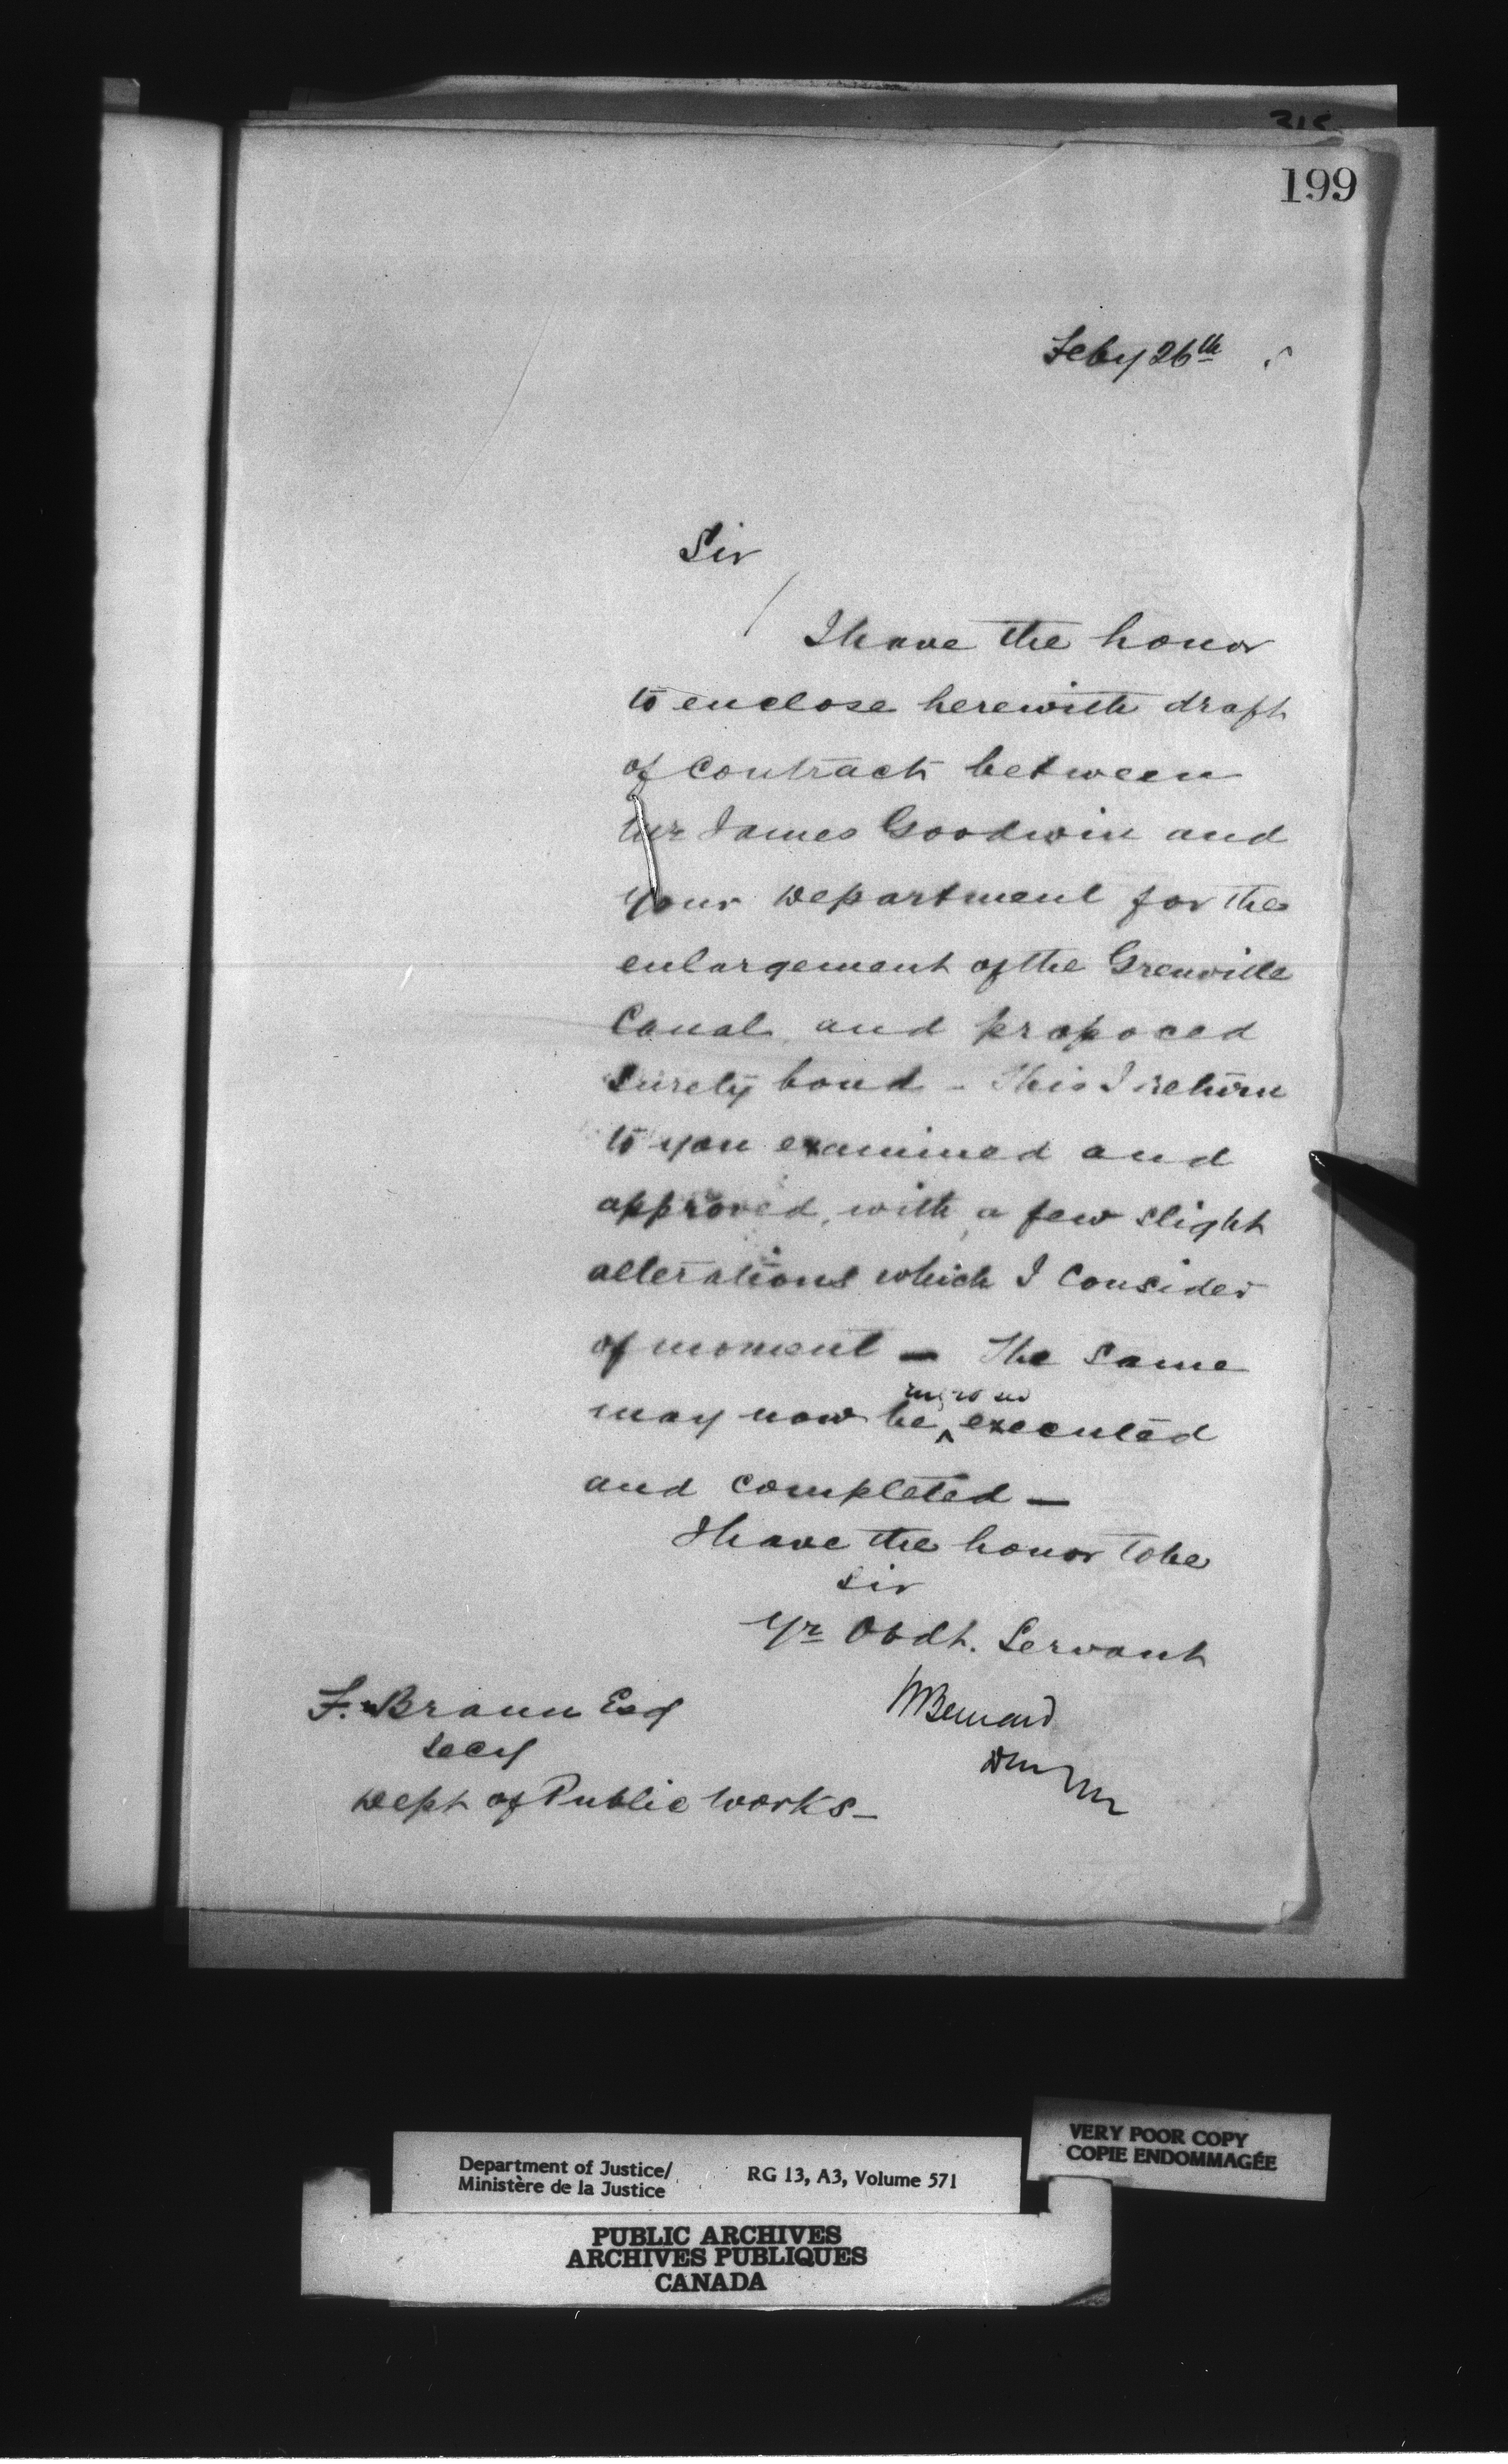 315
199
Feby 26th
Sir
I have the honor
to enclose herewith draft
of contract between
Mr James Goodwin and
your Department for the
enlargement of the Grenville
Canal and propoced
Surety bond - This I return
to you examined and
approved, with a few slight
alterations which I consider
of moment - The same
may now be ^ engrossed executed
and completed -
I have the honor to be
Sir
Yr Obdt. Servant
F. Braun Esq
Secy
Dept of Public Works -
HBernard
DMM
VERY POOR COPY
COPIE ENDOMMAGÉE
Department of Justice/
Ministère de la Justice
RG 13, A3, Volume 571
PUBLIC ARCHIVES
ARCHIVES PUBLIQUES
CANADA